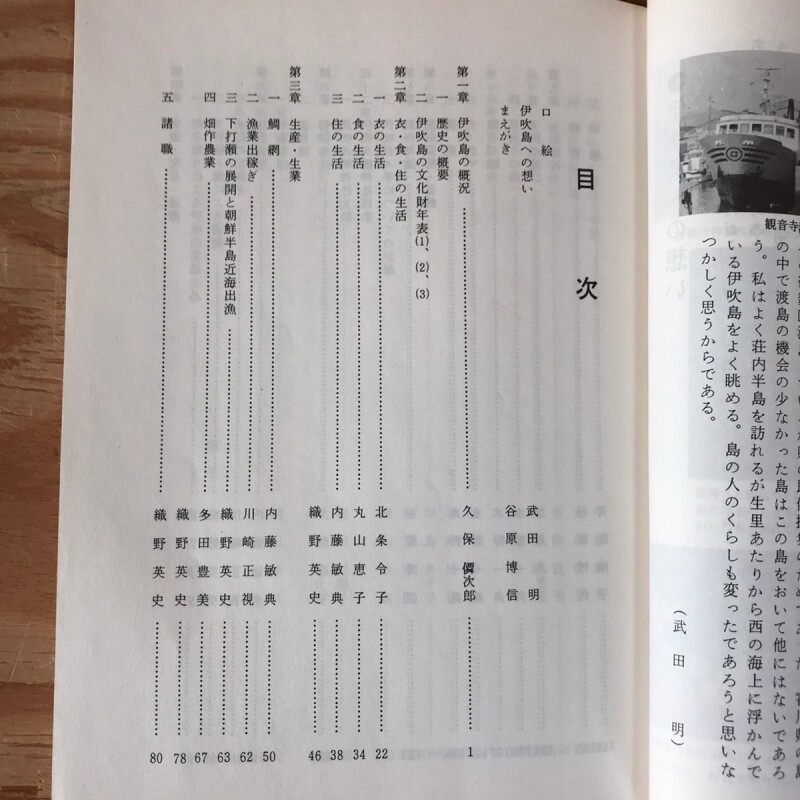 観音寺
の中で渡島の機会の少なかった島はこの島をおいて他にはないであろ
う。私はよく荘内半島を訪れるが生里あたりから西の海上に浮かんで
いる伊吹島をよく眺める。島の人のくらしも変ったであろうと思いな
つかしく思うからである。
(武田 明)
目次
口絵
伊吹島への想い 武田 明
まえがき 谷原博信
第一章 伊吹島の概況 久保 次郎 1
一 歴史の概要
二 伊吹島の文化財年表(1)、(2)、(3)
第二章 衣・食・住の生活
一 衣の生活 北条令子 22
二 食の生活 丸山恵子 34
内藤敏典 38
三 住の生活 織野英史 46
第三章 生産・生業
一 鯛網 内藤敏典 50
二 漁業出稼ぎ 川崎正視 62
三 下打瀬の展開と朝鮮半島近海出漁 織野英史 63
四 畑作農業 多田豊美 67
織野英史 78
五 諸職 織野英史 80